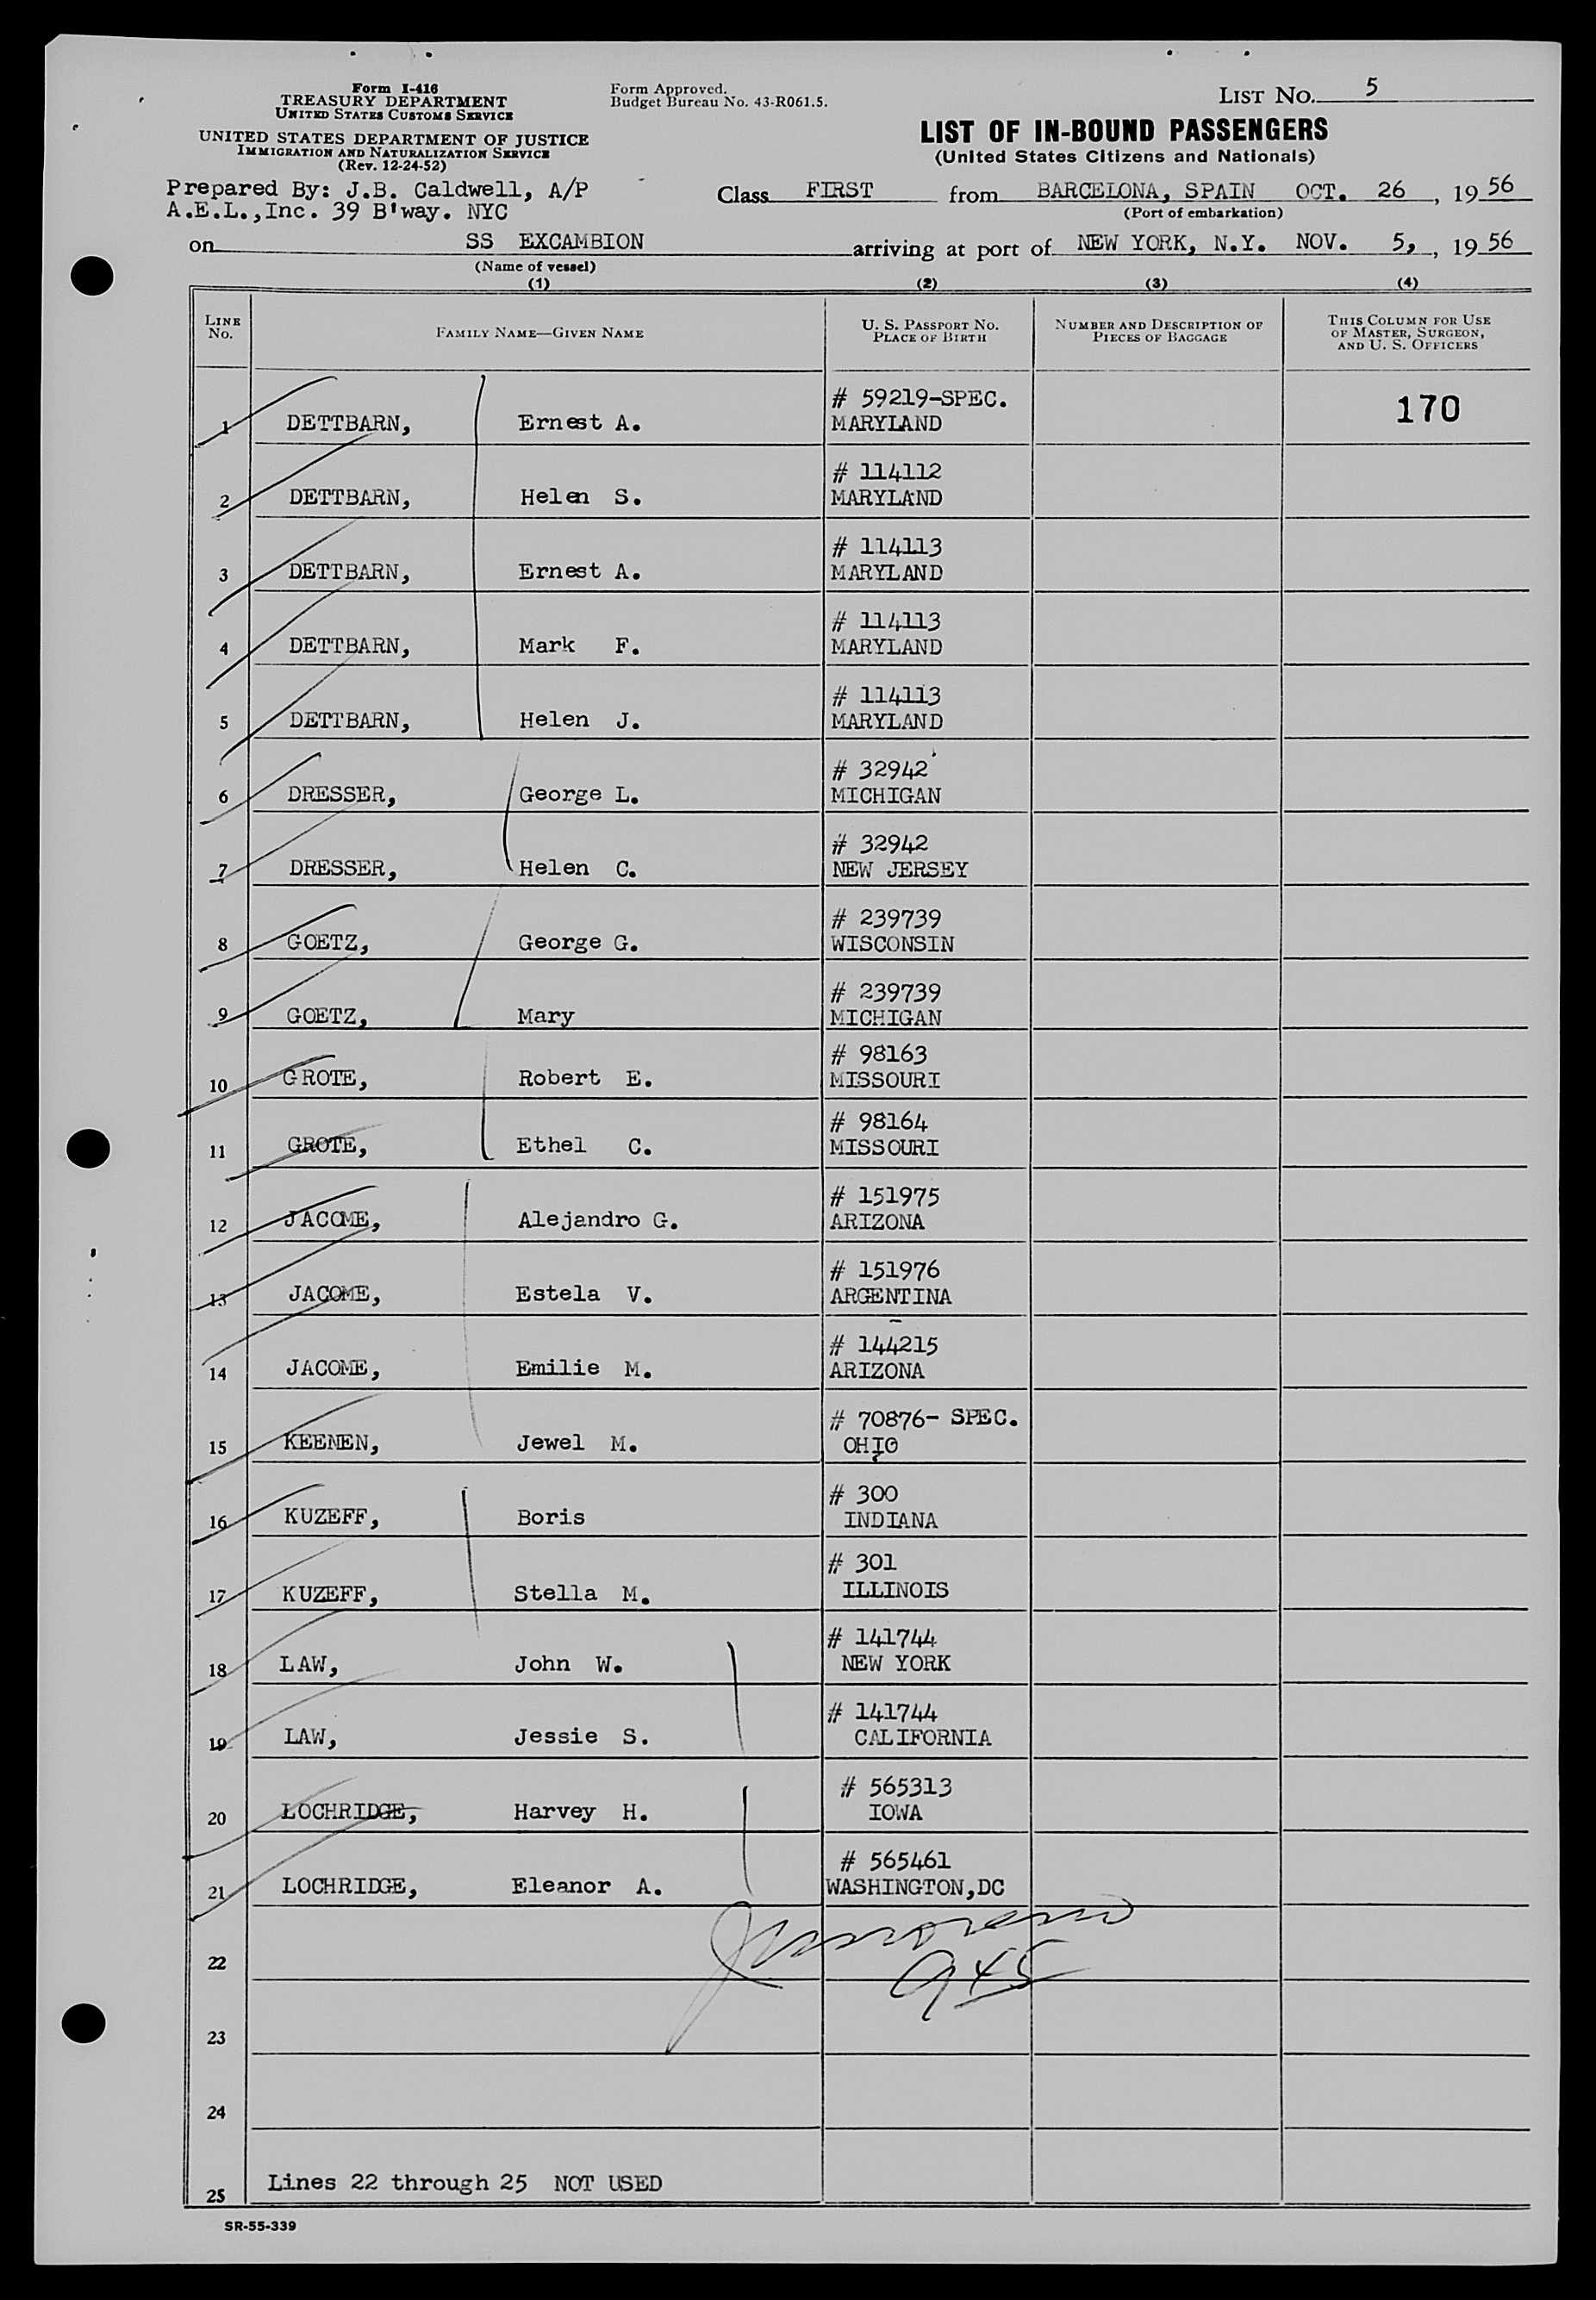 Form I-416
TREASURY DEPARTMENT
UNITED STATES CUSTOMS SERVICE
UNITED STATES DEPARTMENT OF JUSTICE
IMMIGRATION AND NATURALIZATION SERVICE
(Rev. 12-24-52)
Form Approved.
Budget Bureau No. 43-R061.5.
LIST NO. 5
LIST OF IN-BOUND PASSENGERS
(United States Citizens and Nationals)
Prepared By: J.B. Caldwell, A/P
A.E.L.,Inc. 39 B'way. NYC
Class FIRST from BARCELONA, SPAIN OCT. 26, 1956
(Port of embarkation)
on SS EXCAMBION arriving at port of NEW YORK, N.Y. NOV. 5,, 1956
(Name of vessel)
(1) (2) (3) (4)
LINE NO.
FAMILY NAME—GIVEN NAME
U. S. PASSPORT NO.
PLACE OF BIRTH
NUMBER AND DESCRIPTION OF
PIECES OF BAGGAGE
THIS COLUMN FOR USE
OF MASTER, SURGEON,
AND U. S. OFFICERS
# 59219-SPEC.
1 DETTBARN, Ernest A. MARYLAND 170
# 114112
2 DETTBARN, Helen S. MARYLAND
# 114113
3 DETTBARN, Ernest A. MARYLAND
# 114113
4 DETTBARN, Mark F. MARYLAND
# 114113
5 DETTBARN, Helen J. MARYLAND
# 32942
6 DRESSER, George L. MICHIGAN
# 32942
7 DRESSER, Helen C. NEW JERSEY
# 239739
8 GOETZ, George G. WISCONSIN
# 239739
9 GOETZ, Mary MICHIGAN
# 98163
10 GROTE, Robert E. MISSOURI
# 98164
11 GROTE, Ethel C. MISSOURI
# 151975
12 JACOME, Alejandro G. ARIZONA
# 151976
13 JACOME, Estela V. ARGENTINA
# 144215
14 JACOME, Emilie M. ARIZONA
# 70876- SPEC.
15 KEENEN, Jewel M. OHIO
# 300
16 KUZEFF, Boris INDIANA
# 301
17 KUZEFF, Stella M. ILLINOIS
# 141744
18 LAW, John W. NEW YORK
# 141744
19 LAW, Jessie S. CALIFORNIA
# 565313
20 LOCHRIDGE, Harvey H. IOWA
# 565461
21 LOCHRIDGE, Eleanor A. WASHINGTON,DC
22 945
23
24
25 Lines 22 through 25 NOT USED
SR-55-339